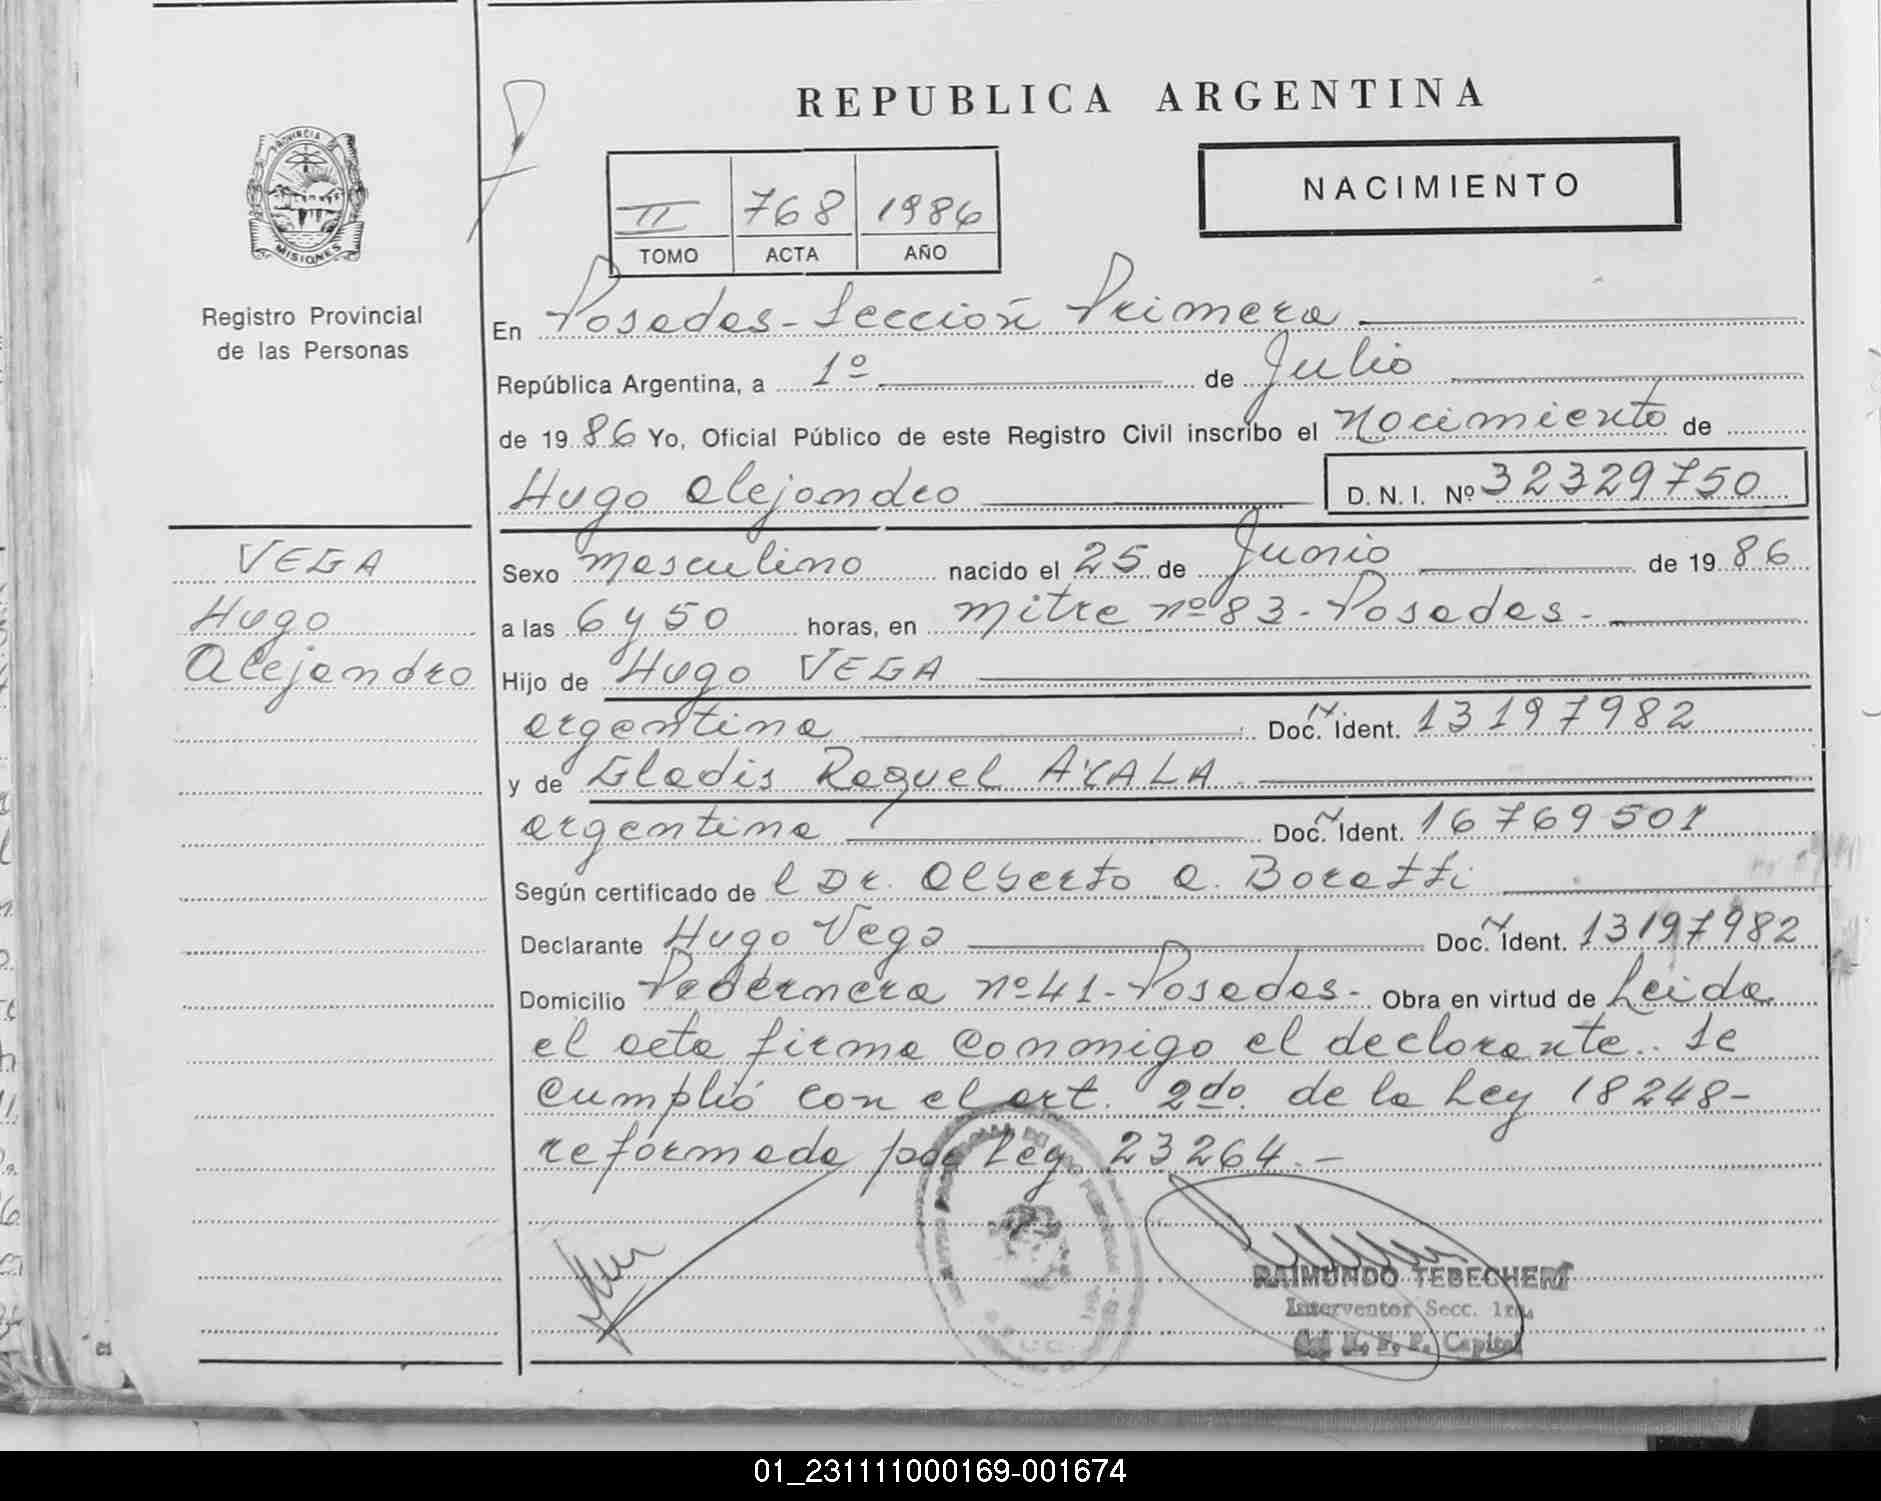 REPUBLICA ARGENTINA
PROVINCIA DE
MISIONES
Registro Provincial
de las Personas
II 768 1986
TOMO ACTA AÑO
NACIMIENTO
En Posadas - Sección Primera
República Argentina, a 1º de Julio
de 1986 Yo, Oficial Público de este Registro Civil inscribo el Nacimiento de
Hugo Alejandro D.N.I. Nº 32329750
VEGA
Hugo
Alejandro
Sexo masculino nacido el 25 de Junio de 1986
a las 6 y 50 horas, en Mitre nº 83 - Posadas -
Hijo de Hugo VEGA
argentina Doc. Ident. 13197982
y de Gladis Raquel AYALA
argentina Doc. Ident. 16769501
Según certificado de l Dr. Alberto A. Boratti
Declarante Hugo Vega Doc. Ident. 13197982
Domicilio Pedernera nº 41 - Posadas - Obra en virtud de Leida
el acta firma conmigo el declarante. Se
cumplió con el art. 2do. de la Ley 18248 -
reformada por Ley 23264. -
RAIMUNDO TEBECHERI
Interventor Secc. 1ra.
R. P. P. Capital
01_231111000169-001674